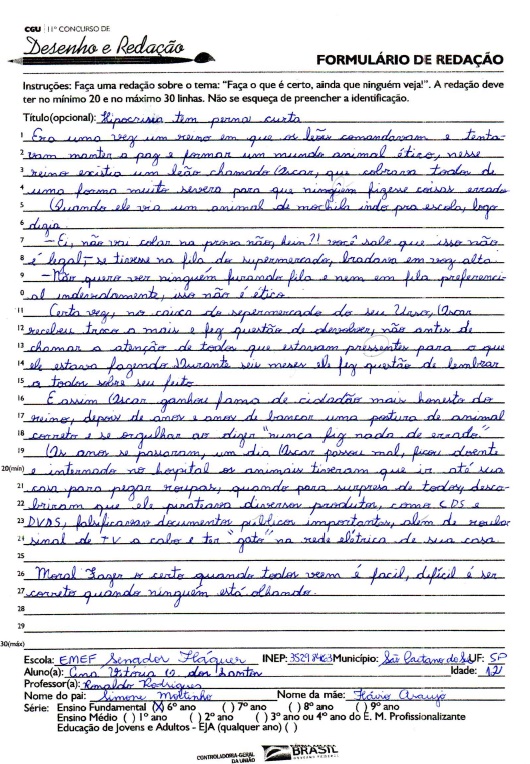 CGU 11º CONCURSO DE
Desenho e Redação
FORMULÁRIO DE REDAÇÃO
Instruções: Faça uma redação sobre o tema: "Faça o que é certo, ainda que ninguém veja!". A redação deve
ter no mínimo 20 e no máximo 30 linhas. Não se esqueça de preencher a identificação.
Título(opcional): Hipocrisia tem perna curta
1 Era uma vez um reino em que os leões comandavam e tenta-
2 vam manter a paz e formar um mundo animal ético, nesse
3 reino existia um leão chamado Oscar, que cobrava todos de
4 uma forma muito severa para que ninguém fizesse coisas errado
5 Quando ele via um animal de mochila indo pra escola, logo
6 dizia
7 - Ei, não vai colar na prova não, hein?! você sabe que isso não
8 é legal, - se tivesse na fila do supermercado, bradava em voz alta.
9 - Não quero ver ninguém furando fila e nem em fila preferenci-
0 al indevidamente, isso não é ético.
11 Certa vez, no caixa do supermercado do seu Urso, Oscar
12 recebeu troco a mais e fez questão de devolver, não antes de
13 chamar a atenção de todos que estavam pressentes para o que
14 ele estava fazendo. Durante seis meses ele fez questão de lembrar
15 a todos sobre seu feito.
16 E assim Oscar ganhou fama de cidadão mais honesto do
17 reino, depois de anos e anos de bancar uma postura de animal
18 correto e se orgulhar ao dizer "nunca fiz nada de errado."
19 Os anos se passaram, um dia Oscar passou mal, ficou doente
20(min) e internado no hospital os animais tiveram que ir até sua
21 casa para pegar roupas, quando para surpresa de todos, desco-
22 briram que ele pirateava diversos produtos, como CDS e
23 DVDS, falsificavam documentos públicos importantes, além de roubar
24 sinal de TV a cabo e ter "gato" na rede elétrica de sua casa.
25
26 Moral: Fazer o certo quando todos veem é facil, difícil é ser
27 correto quando ninguém está olhando.
28
29
30(máx)
Escola: EMEF Senador Fláquer INEP: Município: São Caetano do Sul UF: SP
Aluno(a): Vitória O. dos Santos Idade: 12
Professor(a): Ronaldo Rodrigues
Nome do pai: Simone Moitinho Nome da mãe: Flávio Araujo
Série: Ensino Fundamental (X) 6º ano ( ) 7º ano ( ) 8º ano ( ) 9º ano
Ensino Médio ( ) 1º ano ( ) 2º ano ( ) 3º ano ou 4º ano do E. M. Profissionalizante
Educação de Jovens e Adultos - EJA (qualquer ano) ( )
CONTROLADORIA-GERAL
DA UNIÃO
BRASIL
GOVERNO FEDERAL